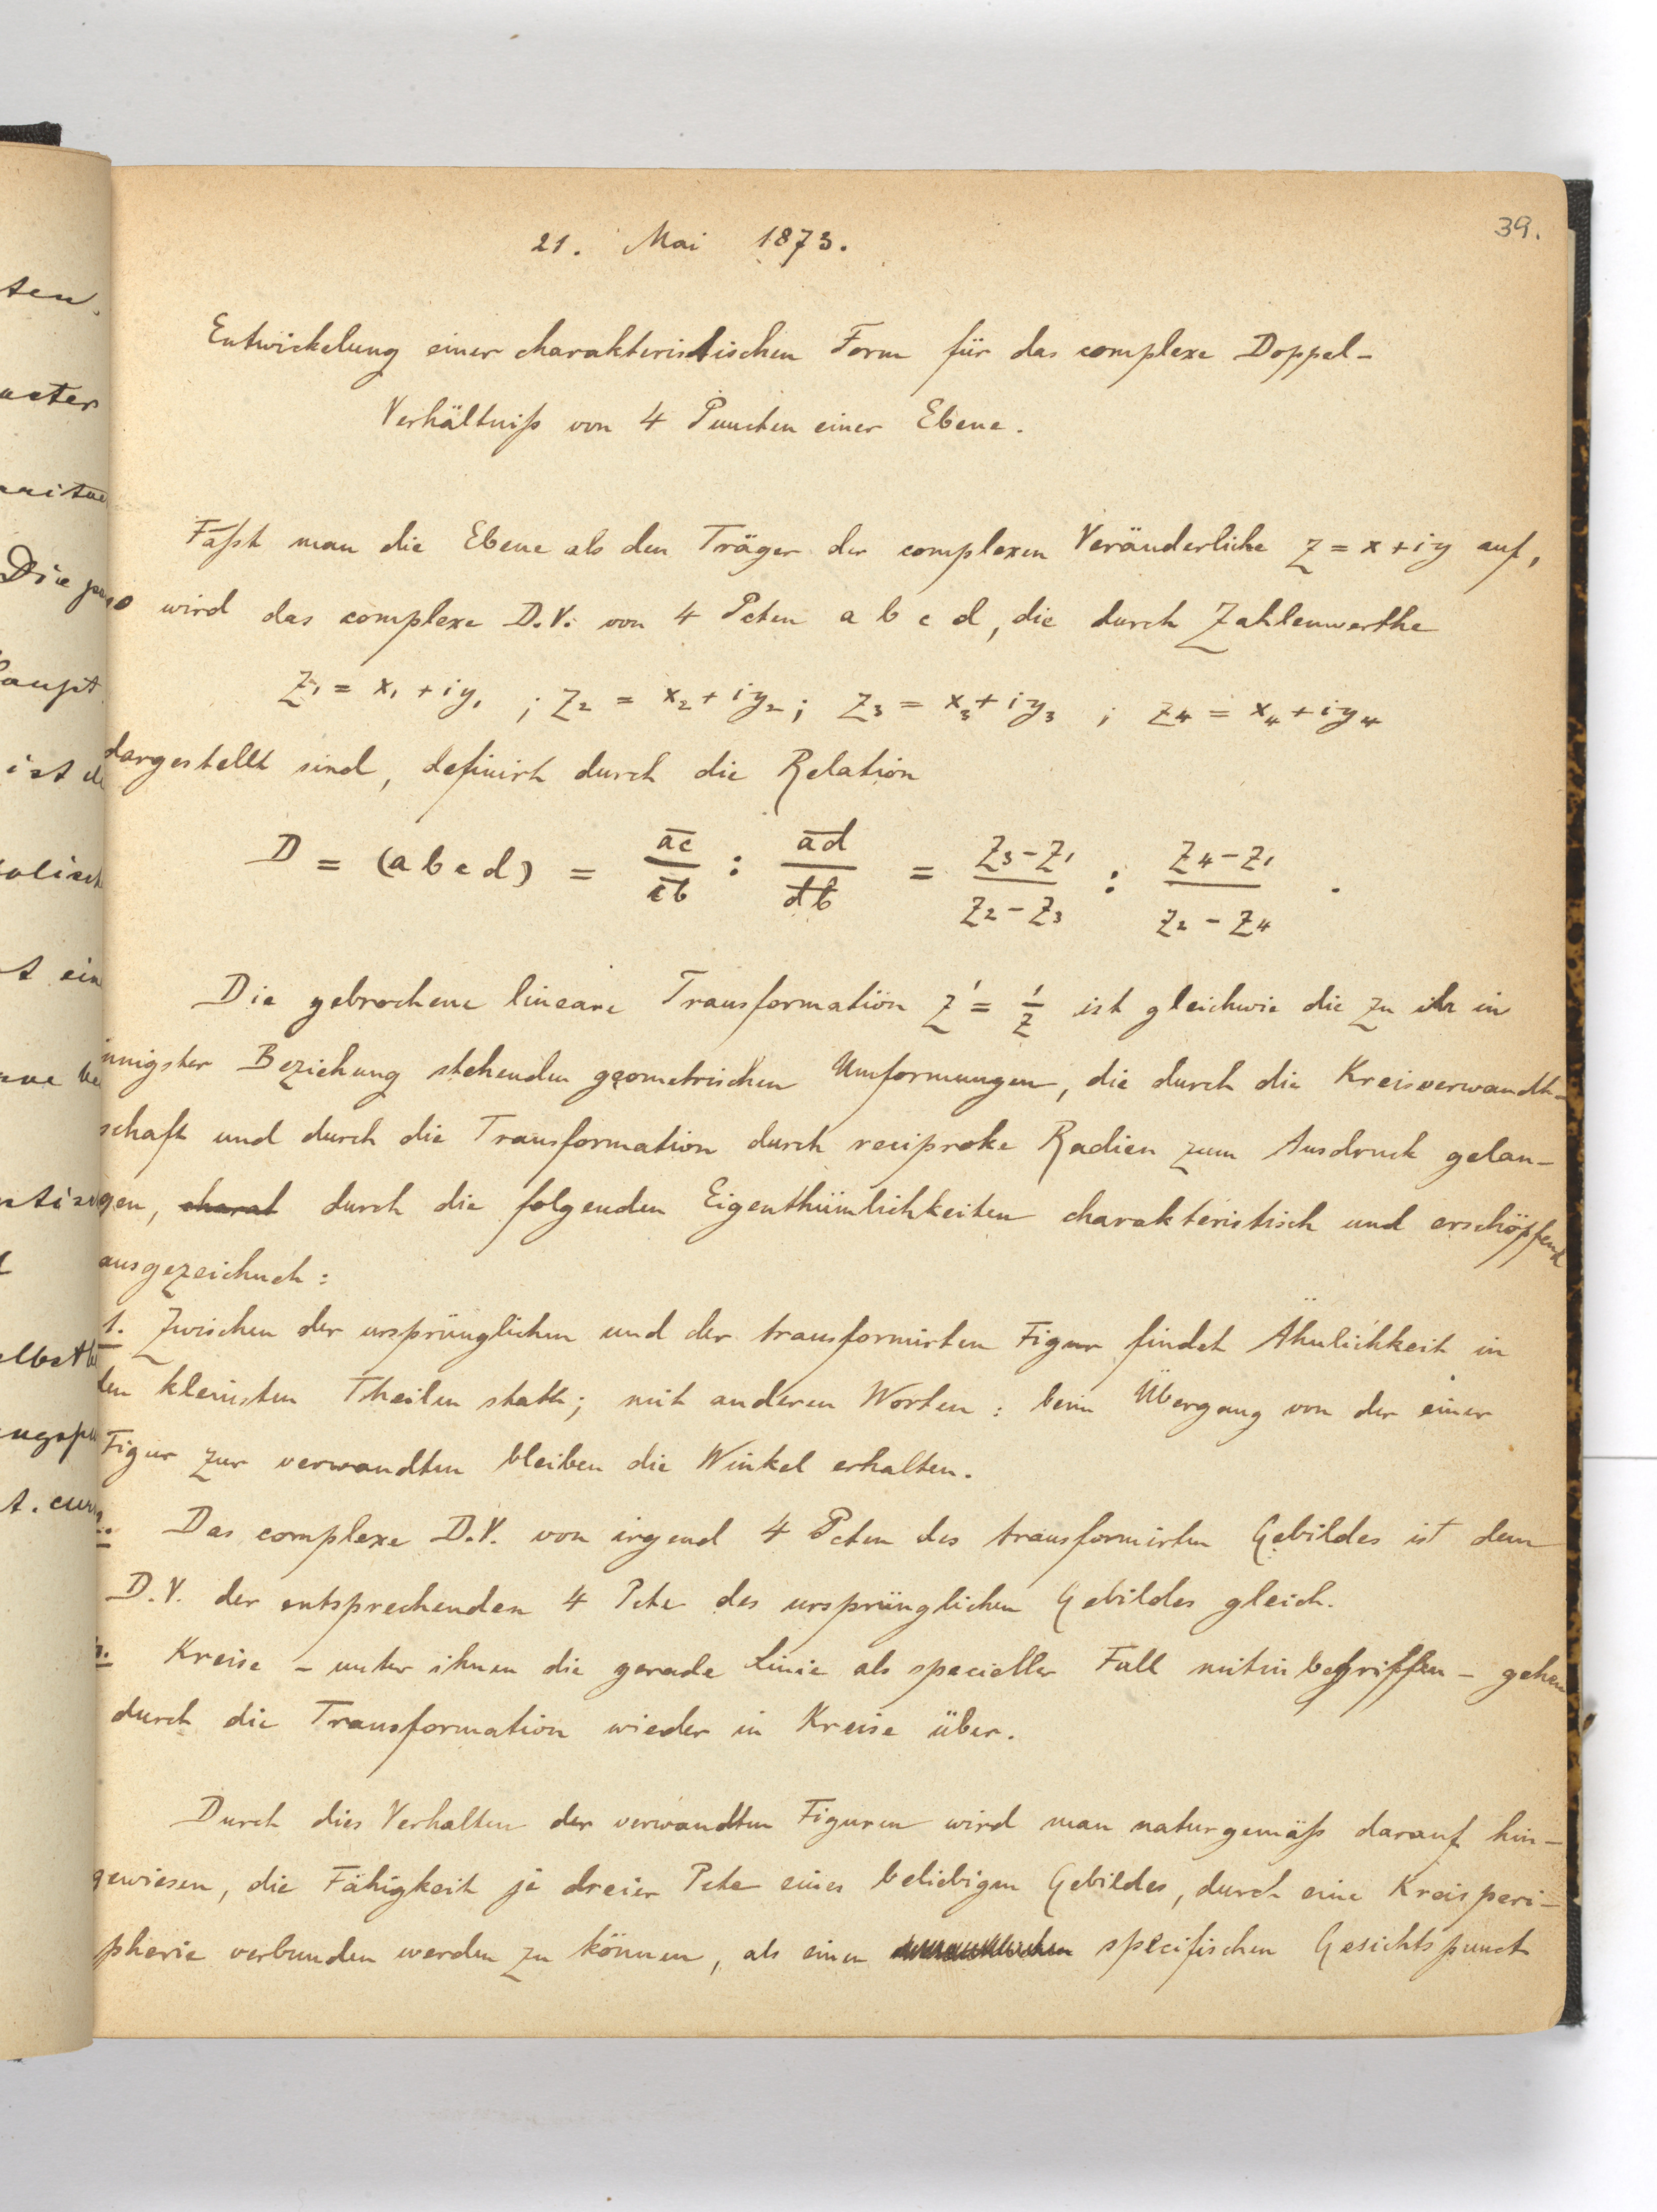 39.
21. Mai 1873.
Entwickelung einer charakteristischen Form für das complexe Doppel-
Verhältniß von 4 Puncten einer Ebene.
Faßt man die Ebene als den Träger der complexen Veränderliche z = x + iy auf,
so wird das complexe D.V. von 4 Pcten a b c d, die durch Zahlenwerthe
z₁ = x₁ + iy₁ ; z₂ = x₂ + iy₂ ; z₃ = x₃ + iy₃ ; z₄ = x₄ + iy₄
dargestellt sind, definirt durch die Relation
D = (a b c d) = ac/cb : ad/db = (z₃ - z₁)/(z₂ - z₃) : (z₄ - z₁)/(z₂ - z₄) .
Die gebrochene lineare Transformation z' = 1/z ist gleichwie die zu ihr in
innigster Beziehung stehenden geometrischen Umformungen, die durch die Kreisverwandt-
schaft und durch die Transformation durch reciproke Radien zum Ausdruck gelan-
gen, charat durch die folgenden Eigenthümlichkeiten charakteristisch und erschöpfend
ausgezeichnet:
1. Zwischen der ursprünglichen und der transformirten Figur findet Ähnlichkeit in
den kleinsten Theilen statt; mit anderen Worten: beim Übergang von der einer
Figur zur verwandten bleiben die Winkel erhalten.
2. Das complexe D.V. von irgend 4 Pcten des transformirten Gebildes ist dem
D.V. der entsprechenden 4 Pcte des ursprünglichen Gebildes gleich.
3. Kreise - unter ihnen die gerade Linie als specieller Fall mitinbegriffen - gehen
durch die Transformation wieder in Kreise über.
Durch dies Verhalten der verwandten Figuren wird man naturgemäß darauf hin-
gewiesen, die Fähigkeit je dreier Pcte eines beliebigen Gebildes, durch eine Kreisperi-
pherie verbunden werden zu können, als einen specifischen Gesichtspunct